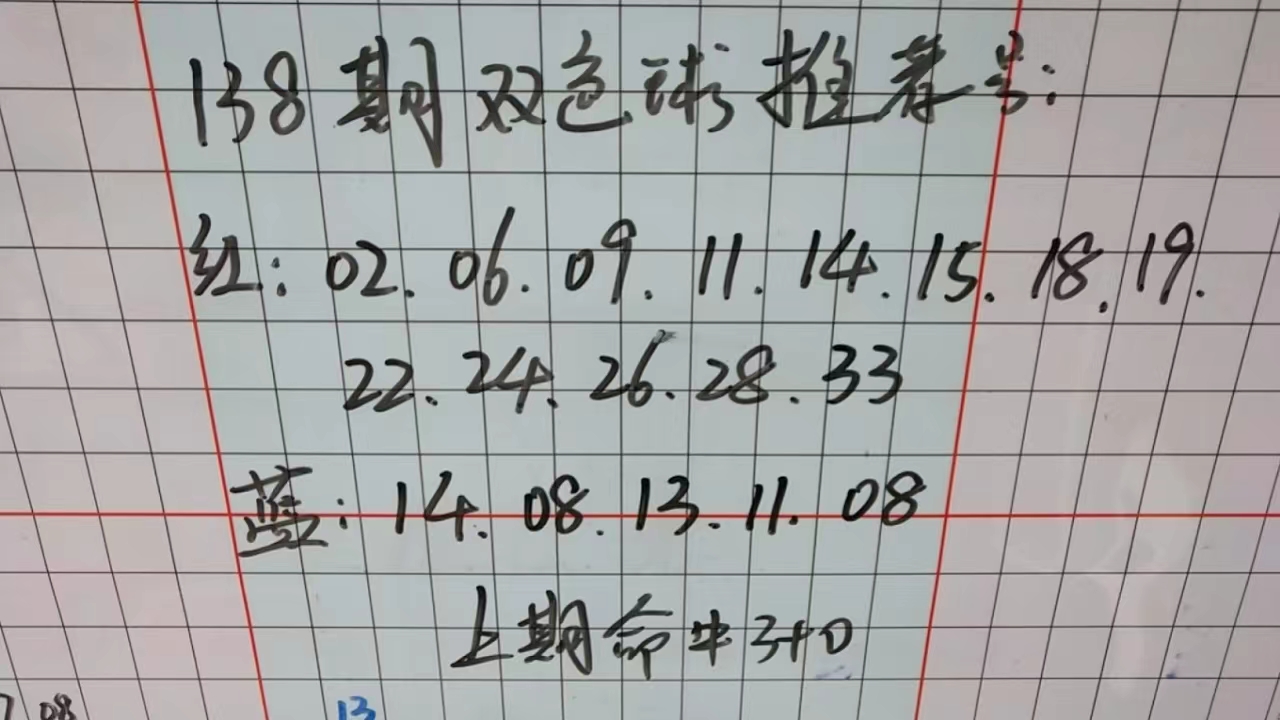 138期双色球推荐号:
红: 02. 06. 09. 11. 14. 15. 18. 19.
22. 24. 26. 28. 33
蓝: 14. 08. 13. 11. 08
上期命中3+0
08
13